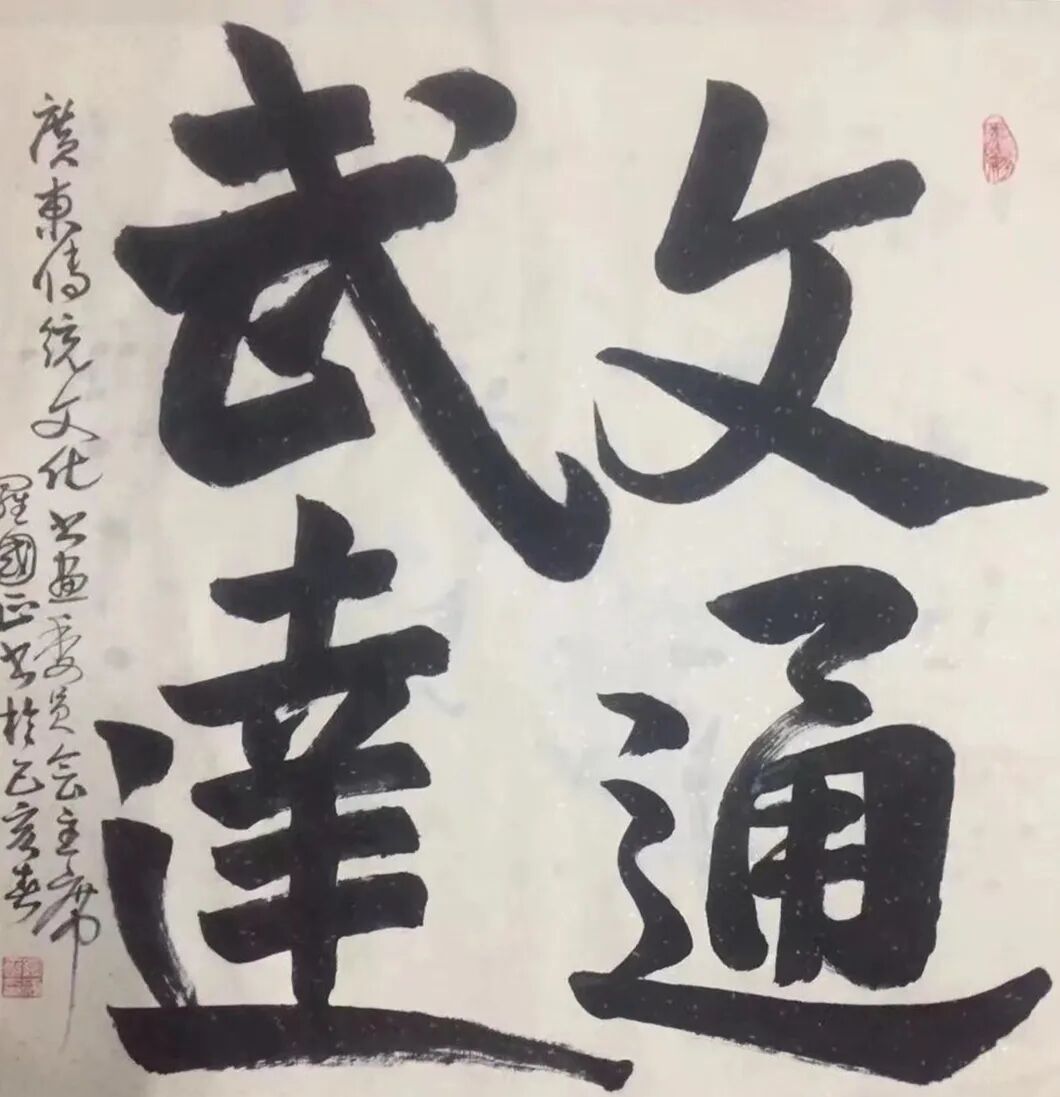 文通
武達
廣東傳統文化书画委员会主席
羅國正书於己亥春